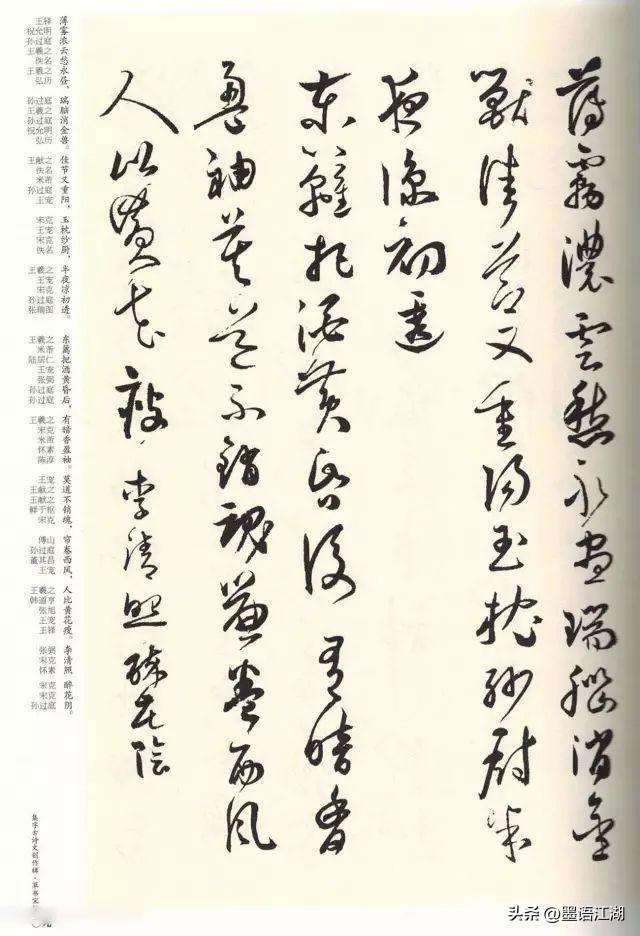 薄霧濃雲愁永晝瑞腦消金
獸佳節又重陽玉枕紗廚半
夜涼初透
東籬把酒黃昏後有暗香
盈袖莫道不銷魂簾卷西風
人比黃花瘦李清照醉花陰
王铎 薄
祝允明 雾
孙过庭 浓
王羲之 云
佚名 愁
王羲之 永
弘历 昼，
孙过庭 瑞
王羲之 脑
孙过庭 消
祝允明 金
弘历 兽。
王献之 佳
佚名 节
米芾 又
孙过庭 重
王宠 阳，
宋克 玉
王宠 枕
宋克 纱
佚名 厨，
王羲之 半
王宠 夜
宋克 凉
孙过庭 初
张瑞图 透。
王羲之 东
米芾 篱
陆居仁 把
王宠 酒
张弼 黄
孙过庭 昏
孙过庭 后，
王羲之 有
宋克 暗
米芾 香
怀素 盈
陈淳 袖。
王宠 莫
王献之 道
王献之 不
鲜于枢 销
宋克 魂，
傅山 帘
孙过庭 卷
董其昌 西
王宠 风，
王羲之 人
韩道亨 比
张旭 黄
王宠 花
王铎 瘦。
张弼 李
宋克 清
怀素 照
宋克 醉
宋克 花
孙过庭 阴。
集字古诗文创作辑·草书宋
头条 @墨语江湖